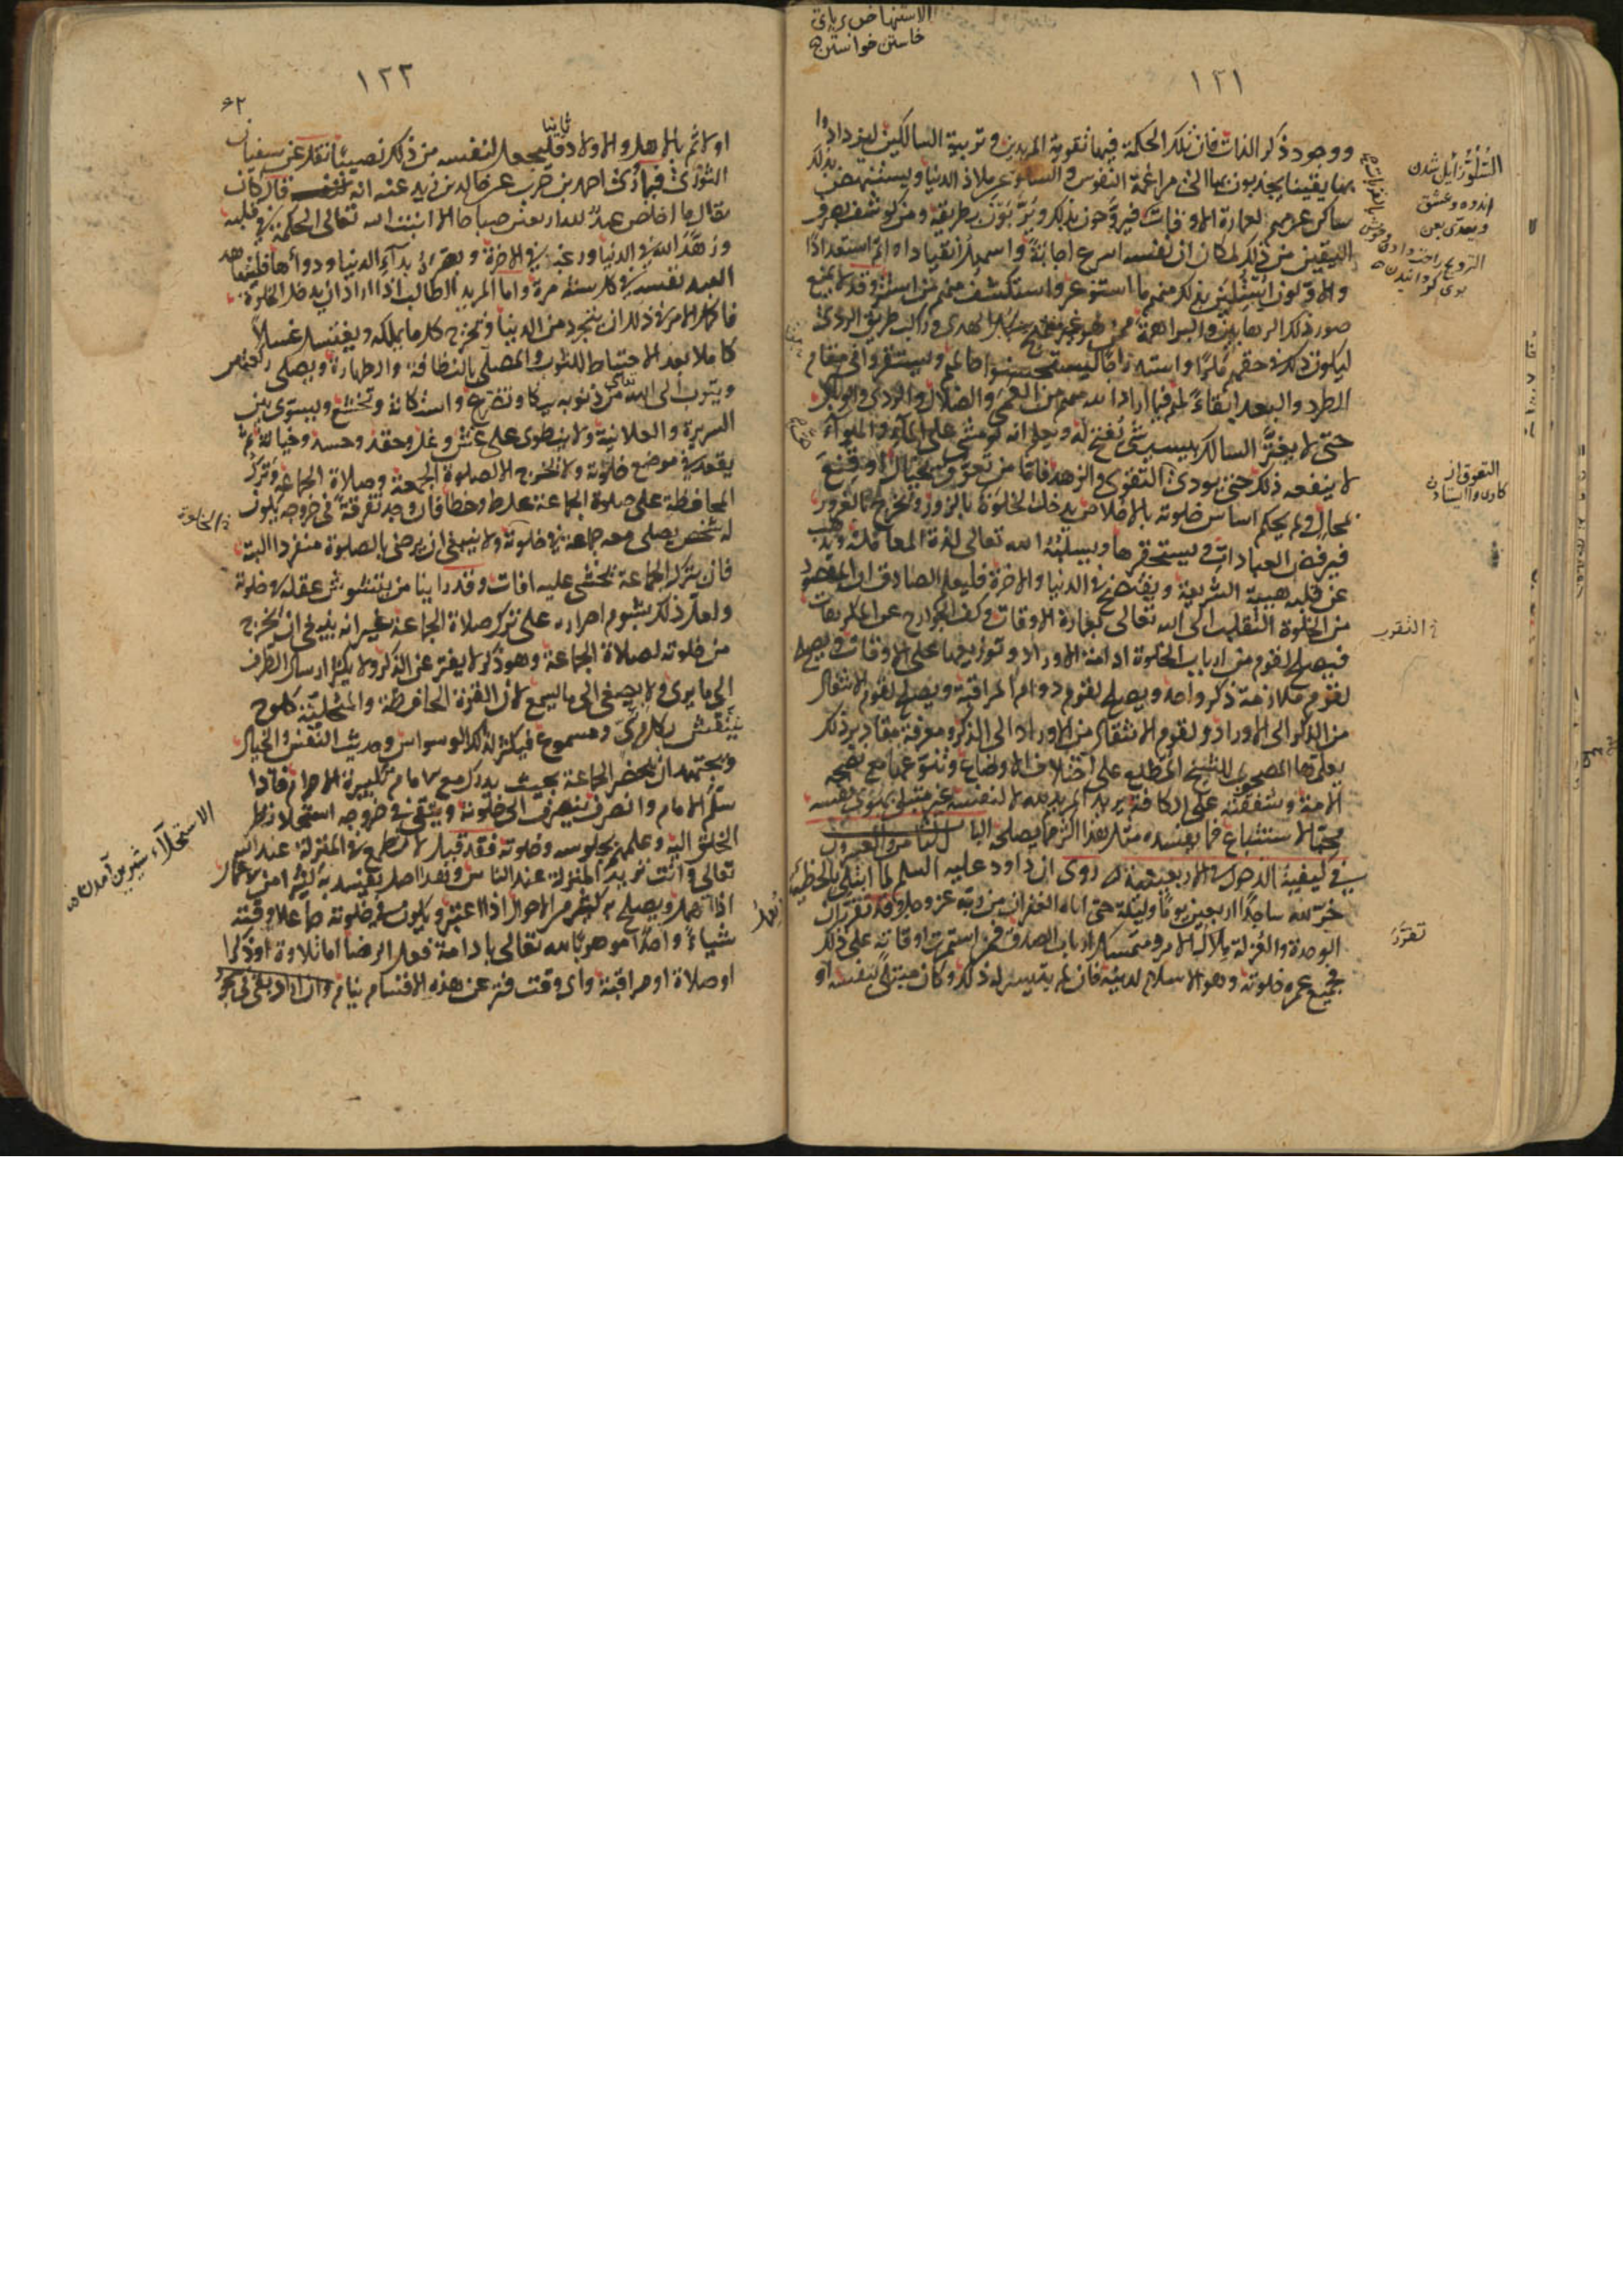 الاستنهاض برپای
خاستن خواستن
١٢١
ووجود ذكر الذات فان تلك الحكمة فيها تقوية المريدين وتربية السالكين ليزدادوا
بها يقينا يجذبون بها الى مراغمة النفوس والسلو عن ملاذ الدنيا ويستنهض بذلك
ساكن عزمهم لعمارة الاوقات فيروحون بذلك ويربون بطريقه ومن كوشف بصرف
اليقين من ذلك لمكان ان نفسه اسرع اجابة واسهل انقيادا واتم استعدادا
والاولون استلين بذلك منهم ما استوعر واستكشف منهم ما استتر وقد لا يمنع
صور ذلك الرهابين والبراهمة ممن هو غير منتهج سبل الهدى وراكب طريق الردى
ليكون ذلك في حقهم مكرا واستدراجا ليستحسنوا حالهم ويستقروا في مقام
الطرد والبعد ابقاء لهم فيما اراد الله منهم من العمى والضلال والردى والوبال
حتى لا يغتر السالك بيسير شئ يفتح له ويعلم انه لو مشى على الماء والهواء
لا ينفعه ذلك حتى يودي حق التقوى والزهد فاما من تعوق بخيال او قنع
بمحال ولم يحكم اساس خلوته بالاخلاص يدخل الخلوة بالزور ويخرج بالغرور
فيرفض العبادات ويستحقرها ويسلبه الله تعالى لذة المعاملة ويذهب
عن قلبه هيبة الشريعة ويفتضح في الدنيا والاخرة فليعلم الصادق ان المقصود
من الخلوة التقلب الى الله تعالى بعمارة الاوقات وكف الجوارح عن المكروهات
فيصلح لقوم من ارباب الخلوة ادامة الاوراد وتوزيعها على الاوقات ويصلح
لقوم ملازمة ذكر واحد ويصلح لقوم دوام المراقبة ويصلح لقوم الانتقال
من الذكر الى الاوراد ولقوم الانتقال من الاوراد الى الذكر ومعرفة مقادير ذلك
يعلمها المصحوب للشيخ المطلع على اختلاف الاوضاع وتنوعها مع نصحه
الامة وشفقته على الكافة يريد المريد لله لا لنفسه غير مبتلى بهوى نفسه
محبا للاستتباع فما يفسده مثل هذا اكثر مما يصلحه الباب الثامن والعشرون
في كيفية الدخول في الاربعينية روى ان داود عليه السلم لما ابتلى بالخطيئة
خر لله ساجدا اربعين يوما وليلة حتى اتاه الغفران من ربه عز وجل وقد تقرر ان
الوحدة والعزلة ملاك الامر ومتمسك ارباب الصدق فمن استمرت اوقاته على ذلك
فجميع عمره خلوة وهو الاسلم لدينه فان لم يتيسر له ذلك وكان مبتلى بنفسه او
السلو زايل شدن
اندوه وعشق
ويعدى بعن
الترويح راحت دادن و خوش
بوی گردانیدن
التعوق از
کاری وا ایستادن
التقرب
تقرر
١٢٢
٦٢
اولا ثم بالاهل والاولاد ثانيا فليجعل لنفسه من ذلك نصيبا نقل عن سفيان
الثوري فيما روى احمد بن حرب عن خالد بن زيد عنه انه قال كان
يقال ما اخلص عبد لله اربعين صباحا الا انبت الله تعالى الحكمة في قلبه
وزهده الله في الدنيا ورغبه في الاخرة وبصره بداء الدنيا ودوائها فليتعاهد
العبد نفسه في كل سنة مرة واما المريد الطالب اذا اراد ان يدخل الخلوة
فاكمل الامر في ذلك ان يتجرد من الدنيا ويخرج كل ما يملكه ويغتسل غسلا
كاملا بعد الاحتياط للثوب والمصلى بالنظافة والطهارة ويصلى ركعتين
ويتوب الى الله تعالى من ذنوبه ببكاء وتضرع واستكانة وتخشع ويسوى بين
السريرة والعلانية ولا ينطوى على غش وغل وحقد وحسد وخيانة ثم
يقعد في موضع خلوته ولا يخرج الا لصلوة الجمعة وصلاة الجماعة وترك
المحافظة على صلوة الجماعة غلط وخطا فان وجد تفرقة في خروجه يكون
له شخص يصلى معه جماعة في خلوته ولا ينبغي ان يرضى بالصلوة منفردا البتة
فان بترك الجماعة يخشى عليه افات وقد راينا من يتشوش عقله في خلوته
ولعل ذلك بشوم اصراره على ترك صلاة الجماعة غير انه ينبغي ان يخرج
من خلوته لصلاة الجماعة وهو ذاكر لا يفتر عن الذكر ولا يكثر ارسال الطرف
الى ما يرى ولا يصغي الى ما يسمع لان القوة الحافظة والمتخيلة كلوح
ينتقش بكل مرئي ومسموع فيكثر لذلك الوسواس وحديث النفس والخيال
ويجتهد ان يحضر الجماعة بحيث يدرك مع الامام تكبيرة الاحرام فاذا
سلم الامام وانصرف ينصرف الى خلوته ويتقي في خروجه استحلا نظر
الخلق اليه وعلمهم بجلوسه في خلوته فقد قيل لا تطمع في المنزلة عند الله
تعالى وانت تريد المنزلة عند الناس وهذا اصل يفسد به كثير من الاعمال
اذا اهمل ويصلح به كثير من الاحوال اذا اعتبر ويكون في خلوته جاعلا وقته
شيئا واحدا موهوبا لله تعالى بادامة فعل الرضا اما تلاوة او ذكرا
او صلاة او مراقبة واى وقت فتر عن هذه الاقسام ينام وان اراد بقى في سجود
في الخلوة
الاستحلاء شیرین آمدن